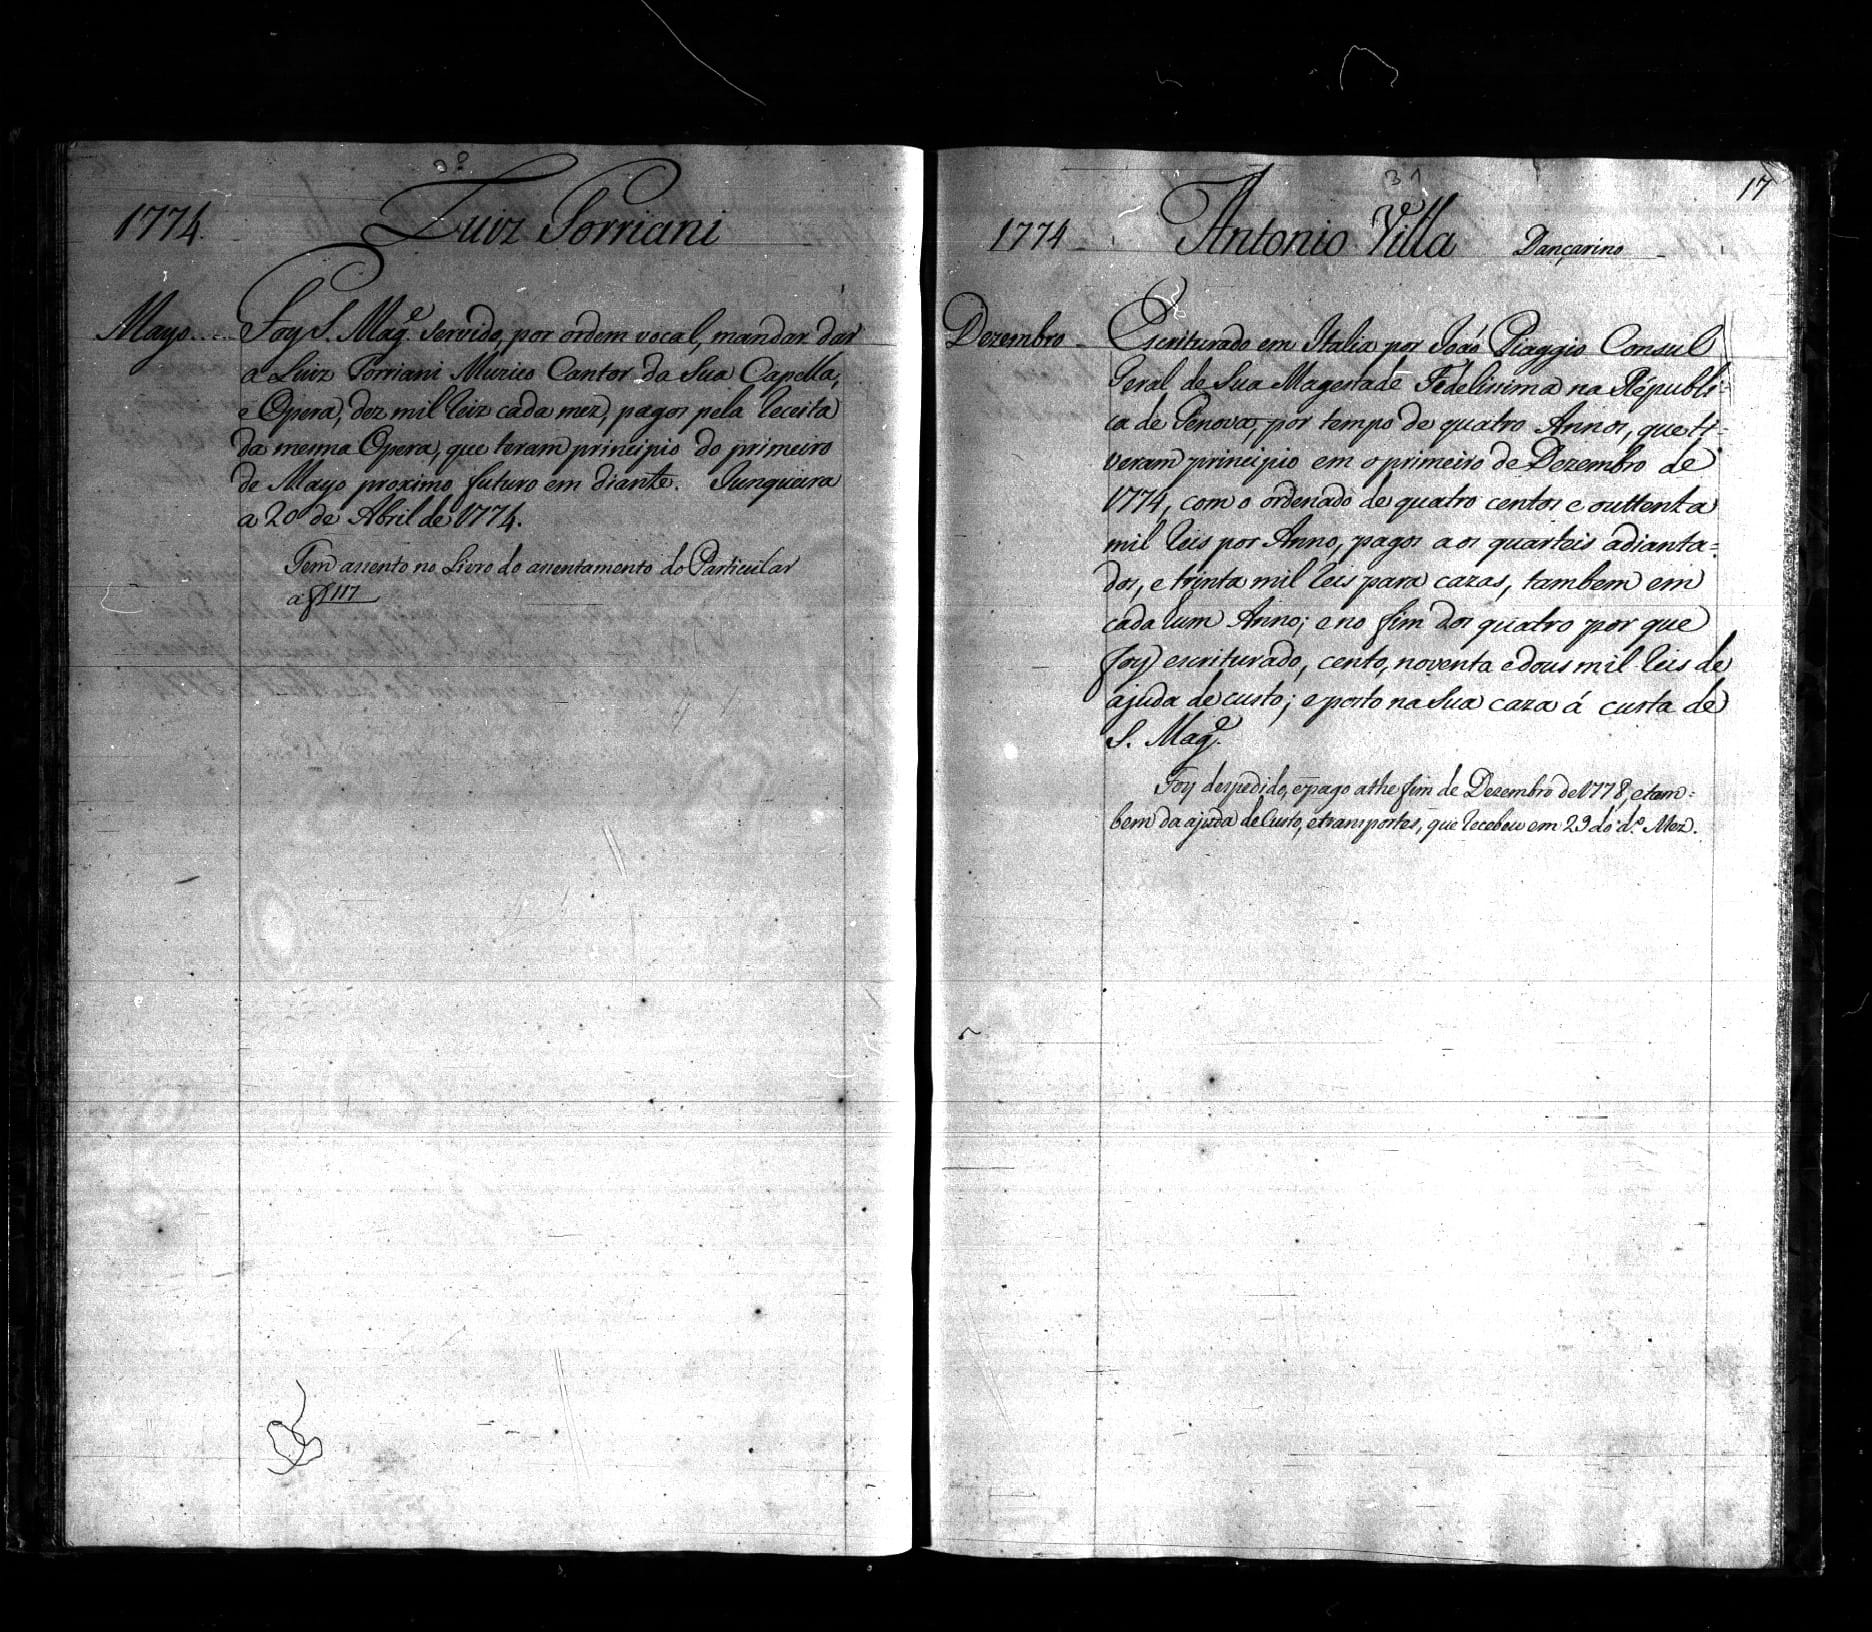 30
1774. Luiz Torriani
Mayo.... Foy S. Mag.e Servido, por ordem vocal, mandar dar
a Luiz Torriani Muzico Cantor da Sua Capella,
e Opera, dez mil Reiz cada mez, pagos pela Receita
da mesma Opera, que teram principio do primeiro
de Mayo proximo futuro em diante. Junqueira
a 20 de Abril de 1774.
Tem assento no Livro do assentamento do Particular
a f 117
31
17
1774 Antonio Villa Dançarino
Dezembro Escriturado em Italia por João Piaggio Consul
Geral de Sua Magestade Fedelissima na Républi=
ca de Genova, por tempo de quatro Annos, que ti=
veram principio em o primeiro de Dezembro de
1774, com o ordenado de quatro centos e outtenta
mil Reis por Anno, pagos aos quarteis adianta=
dos, e trinta mil Reis para cazas, tambem em
cada hum Anno; e no fim dos quatro por que
foy escriturado, cento, noventa e dous mil Reis de
ajuda de custo; e posto na Sua caza á custa de
S. Mag.e
Foy despedido, e pago athe fim de Dezembro de 1778, e tam=
bem da ajuda de Custo, e transportes, que Recebeu em 29 do d.o Mez.